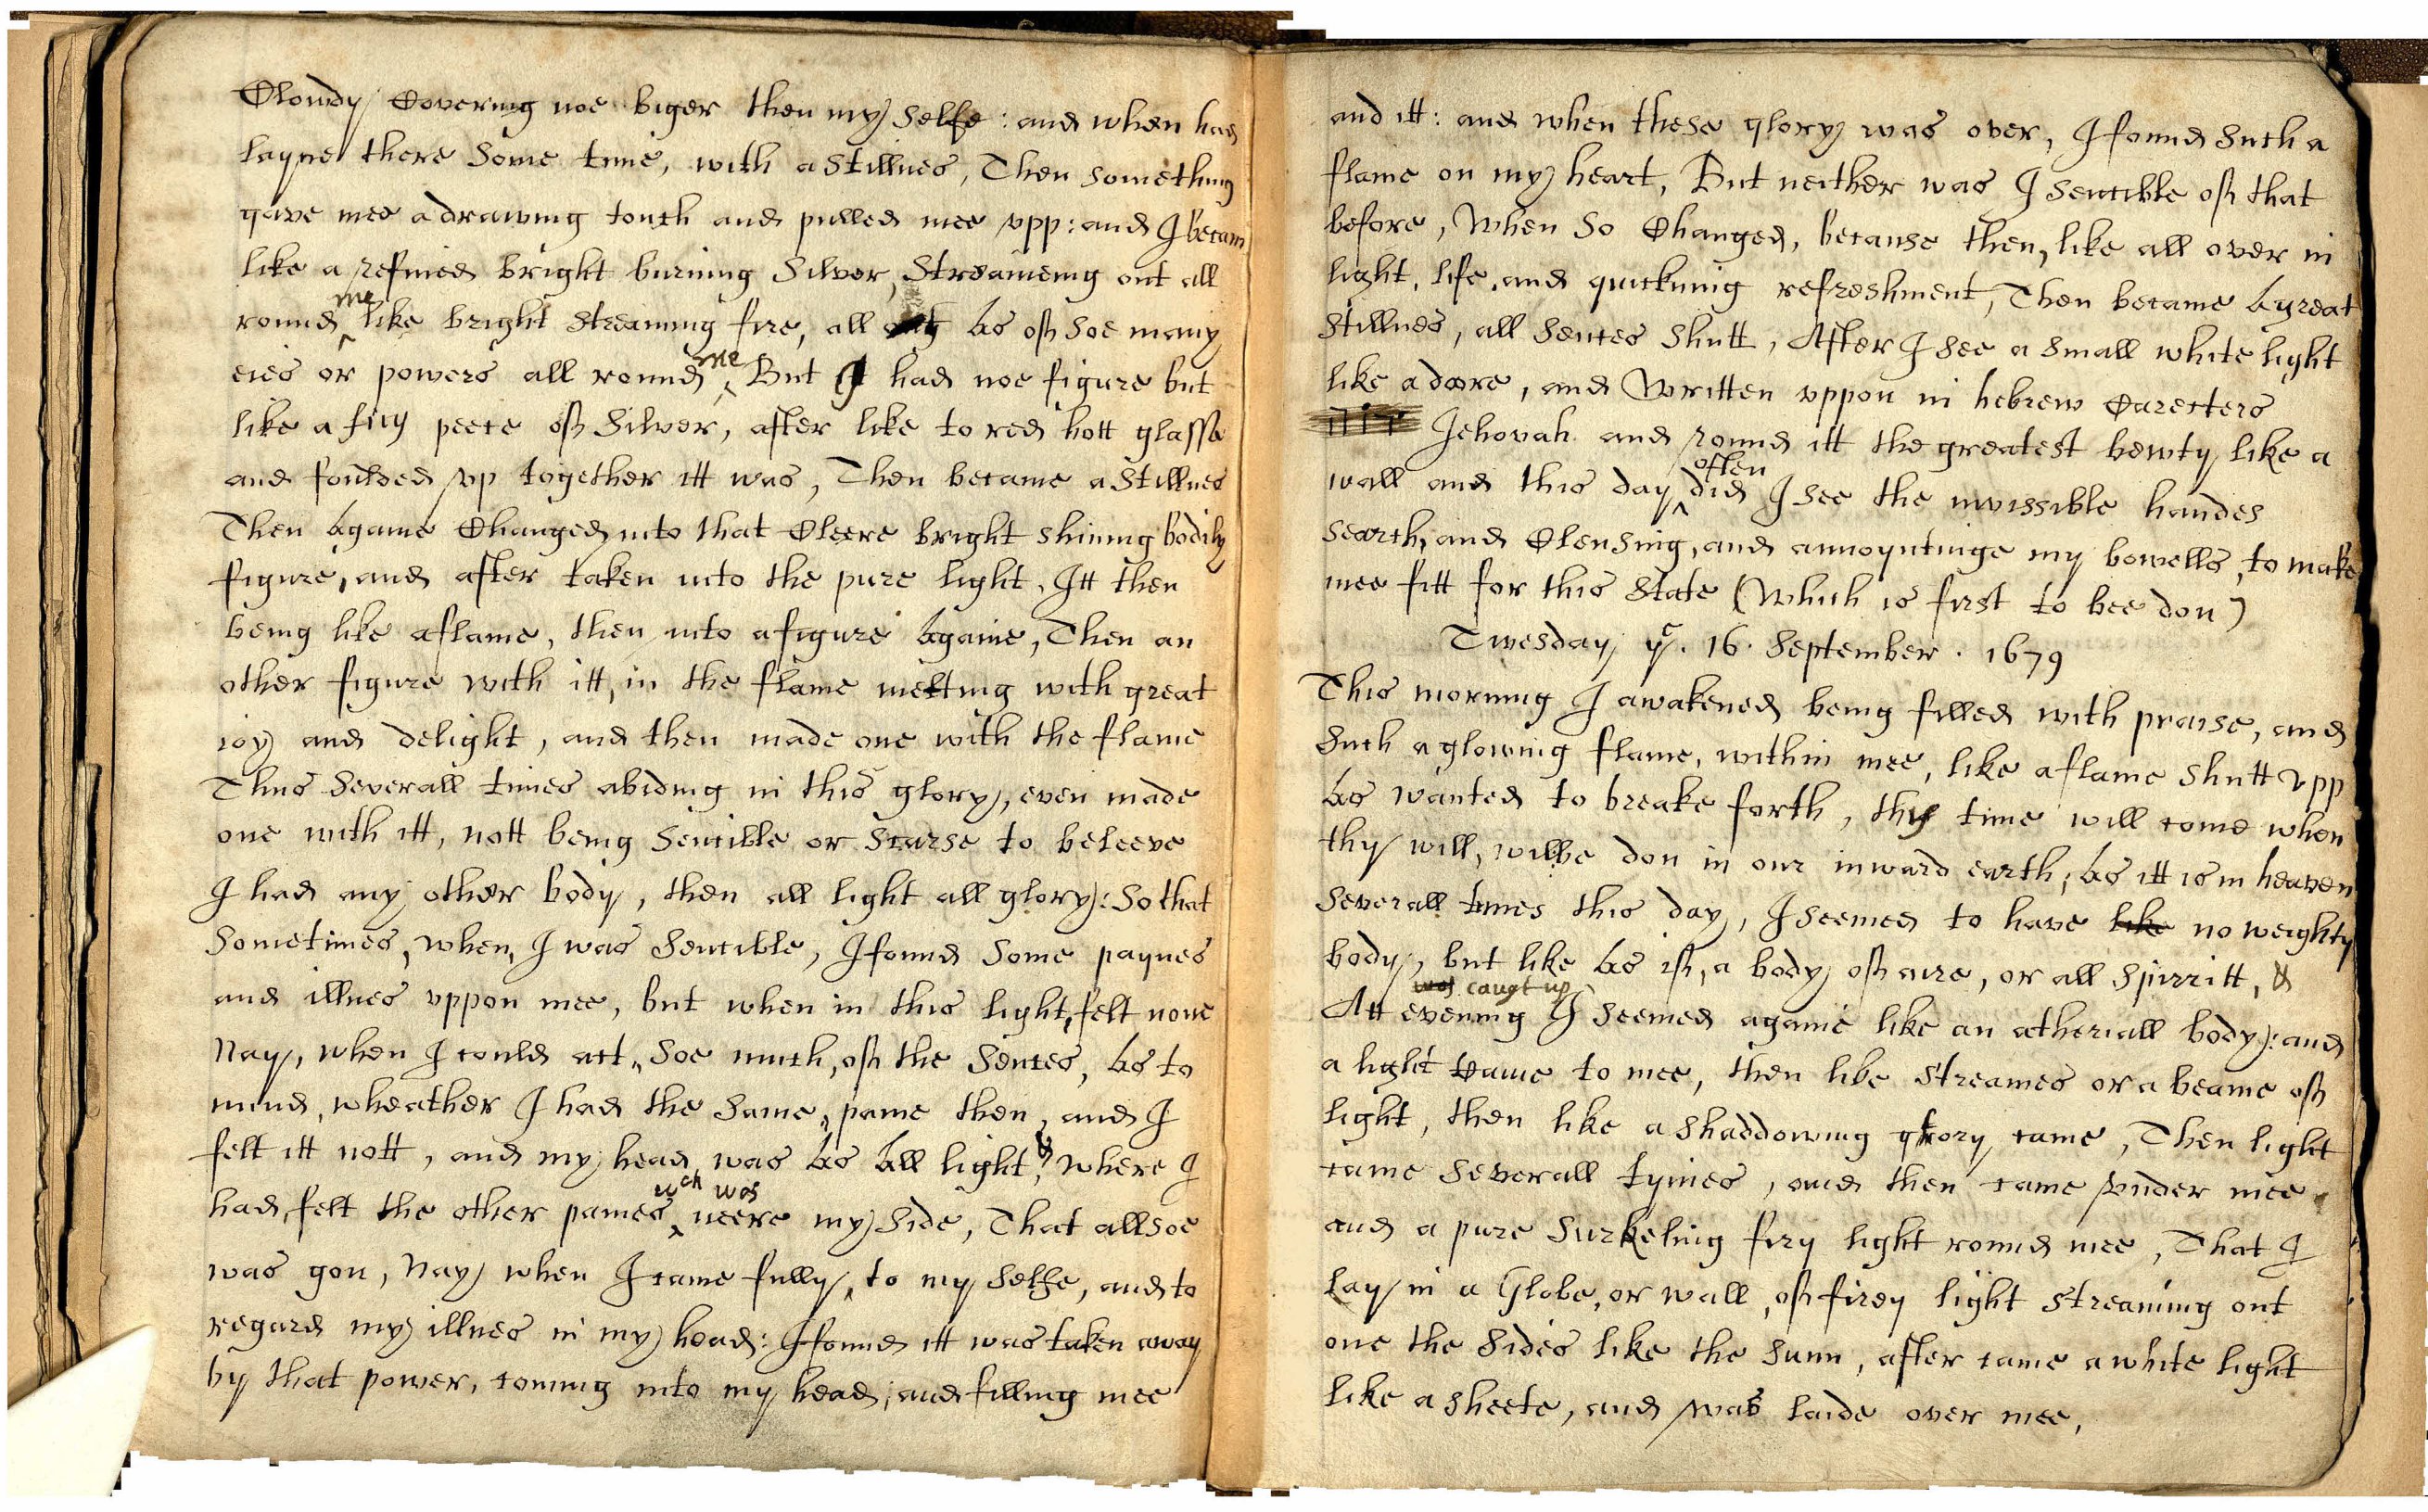 Clowdy Covering noe biger then my selfe: and when had
layne there some time, with a stillnes, Then something
gave mee a drawing touch and pulled mee vpp: and I becam
like a refined bright burning Silver, Streameing out all
round me like bright streaming fire, all as of soe many
eies or powers all round me, But I had noe figure but
like a firy peece of Silver, after like to red hott glasse
and foulded vp together itt was, Then became a Stillnes
Then againe Changed into that Cleere bright shining bodily
figure, and after taken into the pure light, Itt then
being like a flame, then into a figure againe, Then an
other figure with itt, in the flame melting with great
ioy and delight, and then made one with the flame
Thus severall times abiding in this glory, even made
one with itt, nott being sencible or scarse to beleeve
I had any other body, then all light all glory: So that
sometimes, when, I was sencible, I found some paynes
and illnes vppon mee, but when in this light, felt none
Nay, when I could act, soe much, of the sences, as to
mind, wheather I had the same, paine then, and I
felt itt nott, and my head, was as all light, & where I
had, felt the other paines, wch was neere my side, That allsoe
was gon, Nay when I came fully, to my selfe, and to
regard my illnes in my head: I found itt was taken away
by that power, coming into my head, and filling mee
and itt: and when these glory was over, I found such a
flame on my heart, But neither was I sencible of that
before, when so Changed, because then, like all over in
light, life, and quickning refreshment, Then became a great
stillnes, all sences shutt, After I see a small white light
like a doore, and written vppon in hebrew Carecters
Jehovah and round itt the greatest bewty like a
wall and this day often did I see the invissible handes
search, and Clensing, and annoyntinge my bowells, to make
mee fitt for this state (which is first to bee don)
Twesday ye. 16. September. 1679
This morning I awakened being filled with praise, and
such a glowing flame, within mee, like a flame shutt vpp
as wanted to breake forth, thy time will come when
thy will, wilbe don in our inward earth, as itt is in heaven
severall times this day, I seemed to have like no weighty
body, but like as if, a body of aire, or all spirritt, &
was caugt up
Att evening I seemed againe like an atheriall body: and
a light came to mee, then like streames or a beame of
light, then like a shaddowing glory came, Then light
came severall tymes, and then came vnder mee
and a pure surkeling firy light round mee, That I
lay in a Globe, or wall, of firey light streaming out
one the sides like the sunn, after came a white light
like a sheete, and was laide over mee,